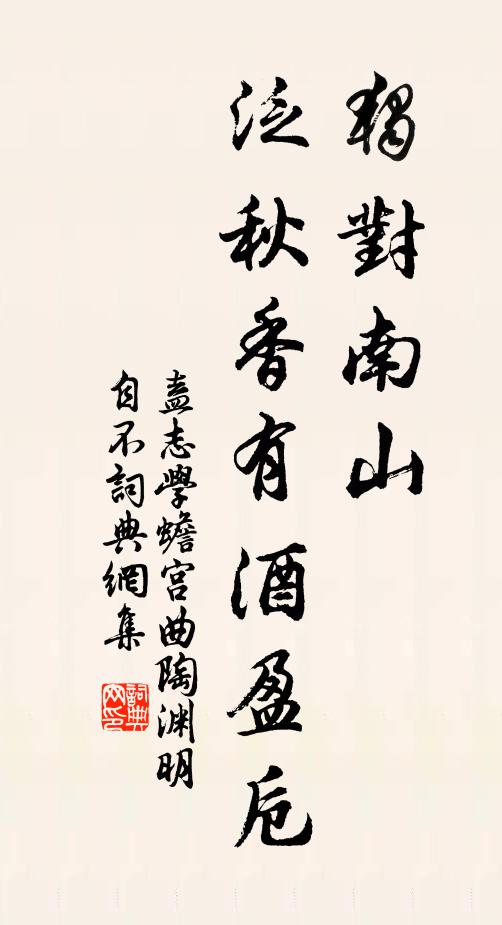 獨對南山
泛秋香有酒盈卮
盍志學蟾宮曲陶渊明
自不詞典網集
詞典网印